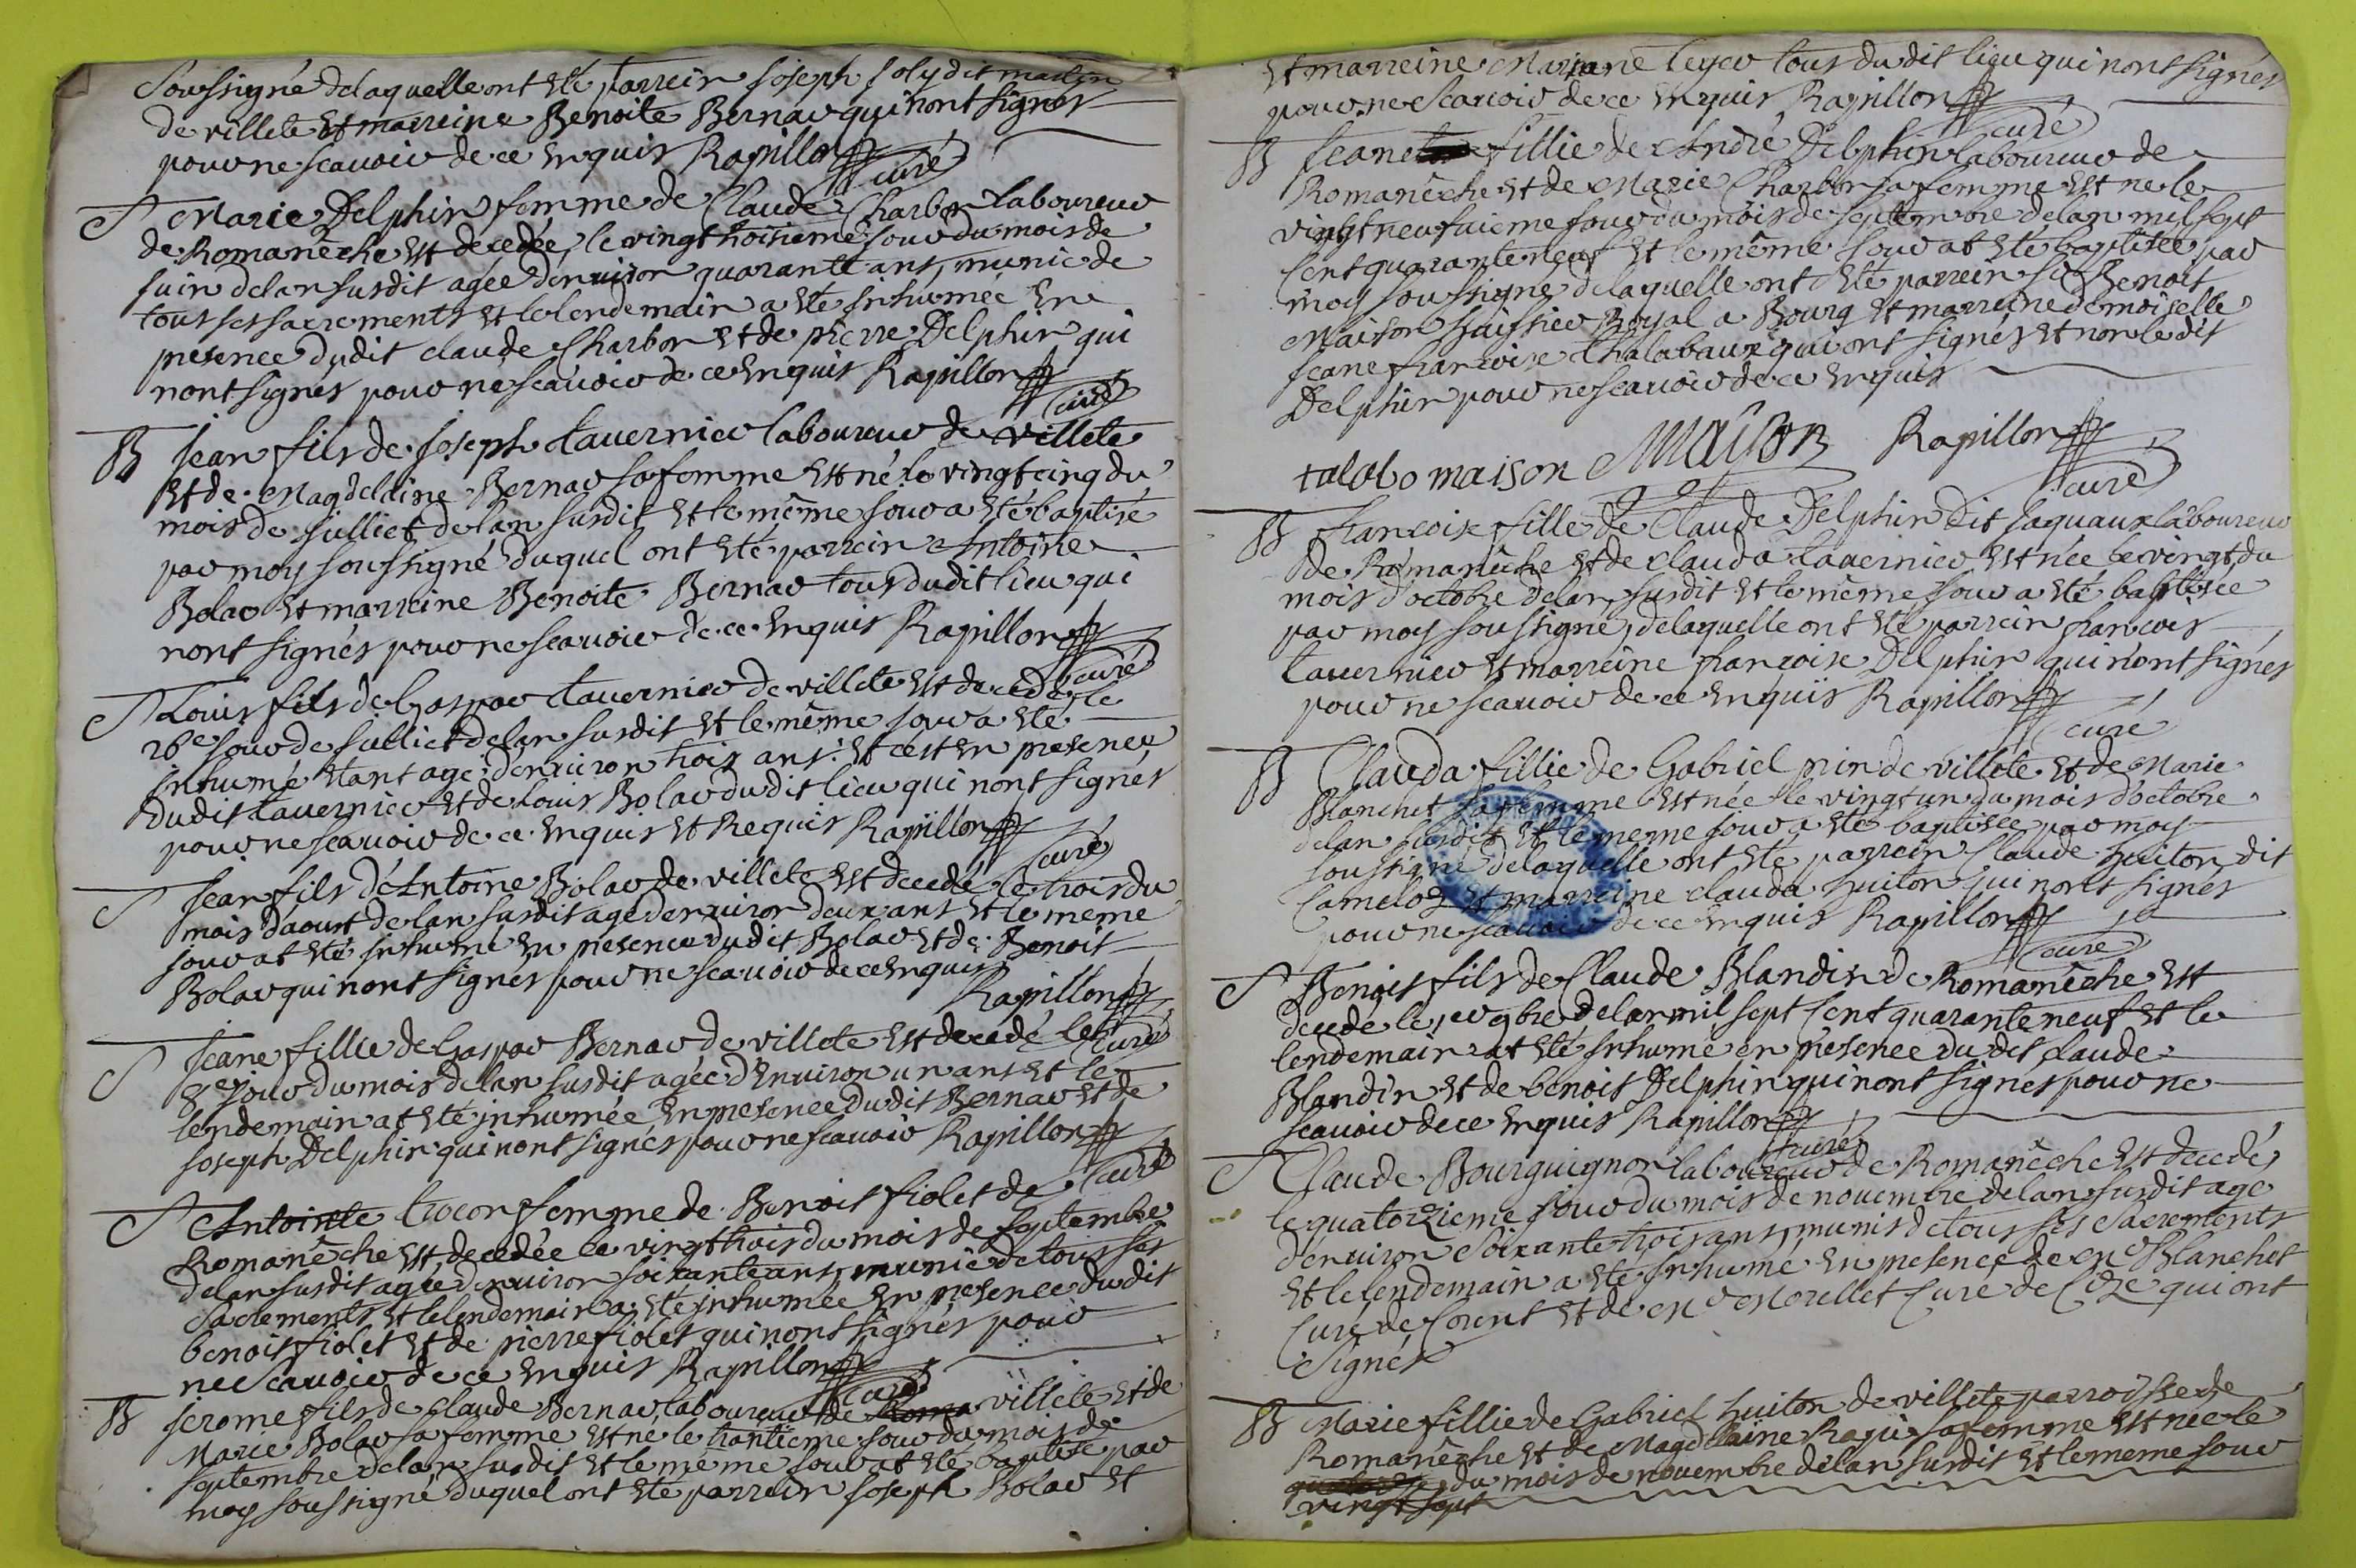 Soussigné delaquelle ont eté parrein Joseph Joly dit martin
de villete et marreine Benoite Bernar qui nont signés
pour ne scavoir de ce enquis Rapillon
curé
S Marie Delphin femme de Claude Charbon laboureur
de Romanêche est decedée, le vingt troisieme jour du mois de
juin delan susdit agée denviron quarante ans, munie de
tous ses sacrements et le lendemain a eté inhumée en
presence dudit claude Charbon et de pierre Delphin qui
nont signés pour ne scavoir de ce enquis Rapillon
curé
B Jean fils de Joseph tavernier laboureur de villete
et de Magdelaine Bernar sa femme est né le vingt cinq du
mois de julliet delan susdit et le même jour a eté baptisé
par moy soussigné duquel ont eté parrein Antoine
Bolar et marreine Benoite Bernar tous dudit lieu qui
nont signés pour ne scavoir de ce enquis Rapillon
curé
S Louis fils de Gaspar tavernier de villete est decedé le
26e jour de julliet delan susdit et le même jour a eté
inhumé etant agé denviron trois ans: et cest en presence
dudit tavernier et de louis Bolar dudit lieu qui nont signés
pour ne scavoir de ce enquis et Requis Rapillon
curé
S Jean fils d'Antoine Bolar de villete est decedé le trois du
mois daoust delan susdit agé denviron deux ans et le meme
jour at eté inhumé en presence dudit Bolar et de Benoit
Bolar qui nont signés pour ne scavoir de ce enquis
Rapillon
curé
S Jeane fillie de Gaspar Bernar de villete est decedé le
8e jour du mois delan susdit agée denviron un ans et le
lendemain at eté inhumée en presence dudit Bernar et de
Joseph Delphin qui nont signés pour ne scavoir Rapillon
curé
S Antointe trocon femme de Benoit fiolet de
Romanêche est decedée le vingt trois du mois de septembre
delan susdit agée denviron soixante ans, munie de tous ses
Sacrements et le lendemain a eté inhumée en presence dudit
benoit fiolet et de pierre fiolet qui nont signés pour
ne Scavoir de ce enquis Rapillon
curé
B jerome fils de claude Bernar laboureur de Roma villete et de
Marie Bolar sa femme est né le trantieme jour du mois de
septembre delan susdit et le meme jour at eté baptisé par
moy soussigné duquel ont eté parrein Joseph Bolar et
et marreine Mariane leyer tous dudit lieu qui nont signés
pour ne scavoir de ce enquis Rapillon
curé
B Jeane fillie de André Delphin laboureur de
Romanêche et de Marie Charbon sa femme est né le
vingt neufvieme jour du mois de septembre delan mil sept
cent quarante neuf et le même jour at eté baptisée par
moy soussigné delaquelle ont eté parrein sr Benoit
Maison huissier Royal a Bourg et marreine demoiselle
jeane francoise thalabaux qui ont signés et non ledit
Delphin pour ne scavoir de ce enquis
talabo maison Maison Rapillon
curé
B francoise fille de Claude Delphin dit jaquaux laboureur
de Romanêche et de clauda tavernier est née le vingt du
mois d'octobre delan susdit et le même jour a eté baptisée
par moy soussigné, delaquelle ont eté parrein francois
tavernier et marreine francoise Delphin qui nont signés
pour ne scavoir de ce enquis Rapillon
curé
B Clauda fillie de Gabriel pin de villete et de Marie
Blanchet sa femme est née le vingt un du mois d'octobre
delan susdit et le meme jour a eté baptisée par moy
soussigné delaquelle ont eté parrein Claude huiton dit
Cameloz et marreine clauda huiton qui nont signés
pour ne scavoir de ce enquis Rapillon
curé
S Benoit fils de Claude Blandin de Romanêche est
decedé le 9bre delan mil sept cent quarante neuf et le
lendemain at eté inhumé en presence dudit Claude
Blandin et de benoit Delphin qui nont signés pour ne
scavoir de ce enquis Rapillon
curé
S Claude Bourguignon laboureur de Romanêche est decedé,
le quatorzieme jour du mois de novembre delan susdit agé
denviron Soixante trois ans, munis de tous ses Sacrements
et le lendemain a eté inhumé en presence de Mr Blanchet
Curé de Corent et de Mr Morellet Curé de Cize qui ont
Signés
B Marie fillie de Gabriel huiton de villete parroisse de
Romanêche et de Magdelaine Ragit sa femme est née le
quatorze du mois de novembre delan susdit et le meme jour
vingt sept